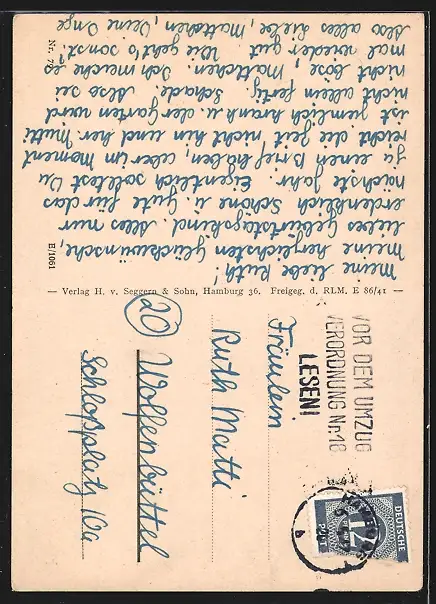 Meine liebe Ruth!
Meine herzlichsten Glückwünsche,
liebes Geburtstagskind. Alles nur
erdenklich Schöne u. Gute für das
nächste Jahr. Eigentlich solltest Du
ja einen Brief haben, aber im Moment
reicht die Zeit nicht hin und her. Mutti
ist ziemlich krank u. der Garten wird
nicht allein fertig. Schade. Also sei
nicht böse, Mattchen. Ich mache es
mal wieder gut. Wie geht's sonst?
Also alles Liebe, Mattchen, Deine Inge
E/1061
Nr. 76
— Verlag H. v. Seggern & Sohn, Hamburg 36. Freigeg. d. RLM. E 86/41 —
VOR DEM UMZUG
VERORDNUNG Nr. 18
LESEN!
DEUTSCHE
POST
12
PFENNIG
Fräulein
Ruth Matti
(20) Wolfenbüttel
Schloßplatz 16a